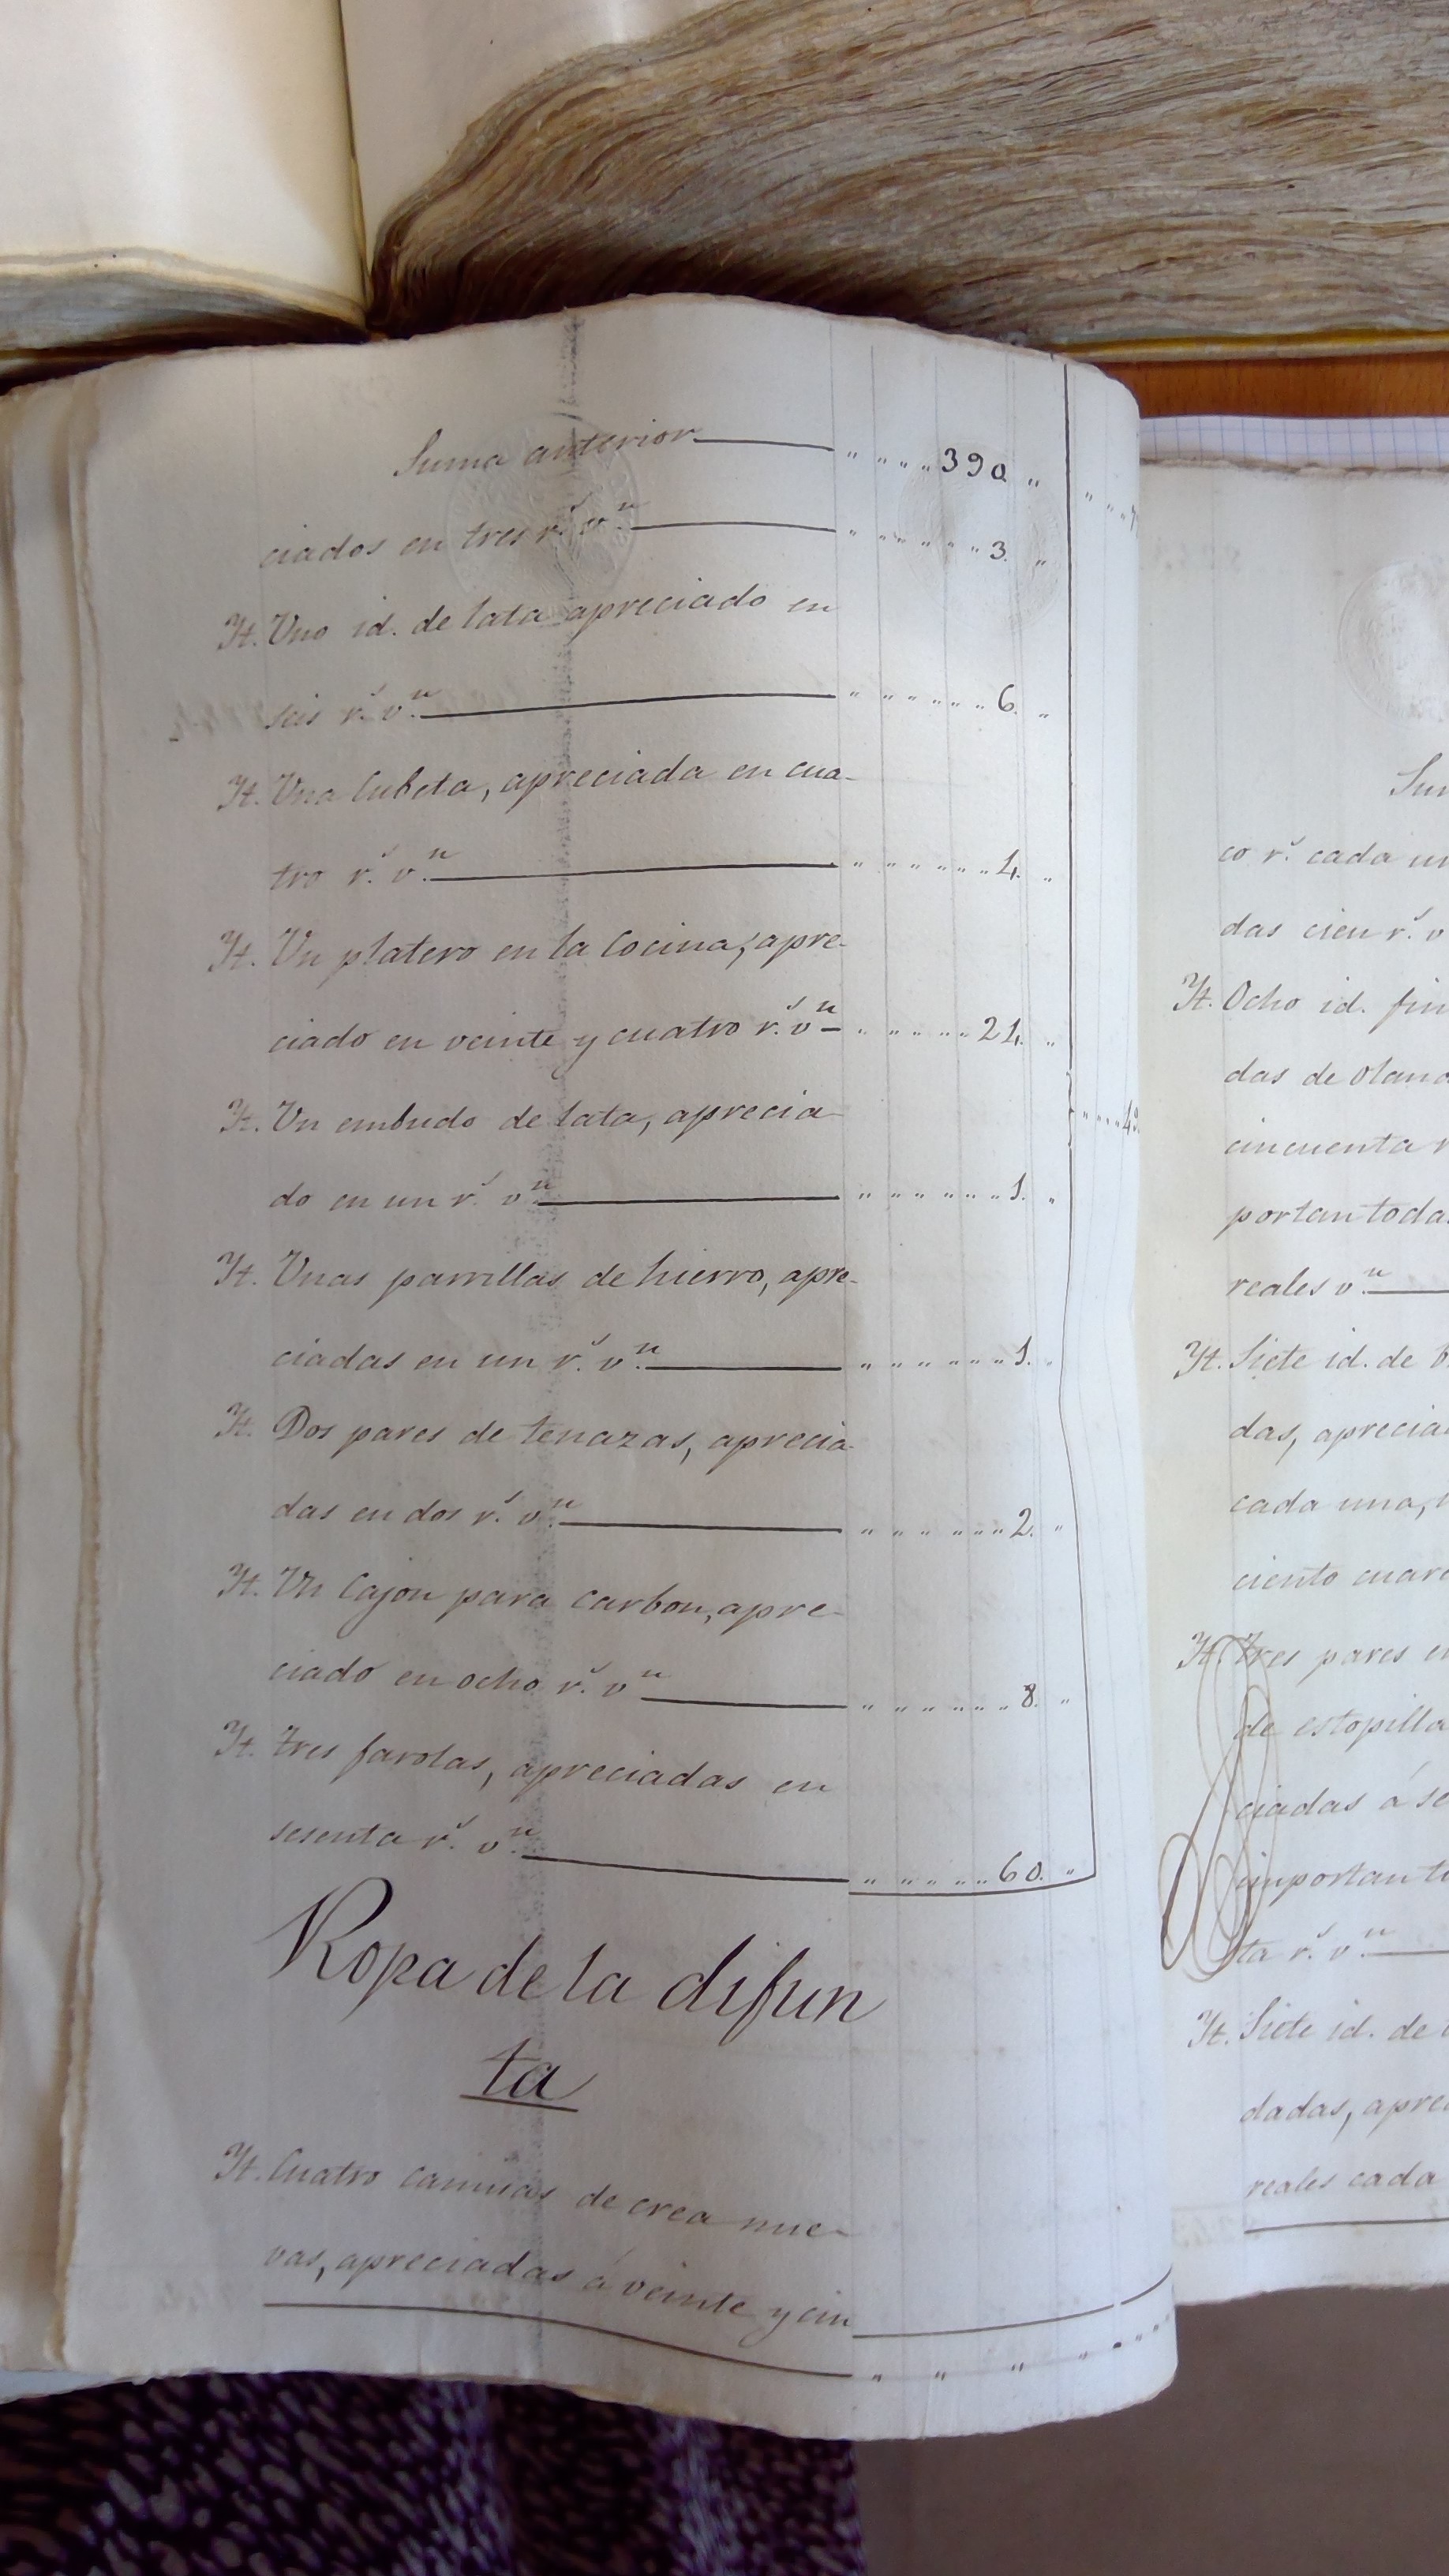 Suma anterior " " " " 390 "
ciados en tres r.s v.n " " " " " " 3. "
Yt. Uno id. de lata apreciado en
seis r.s v.n " " " " " " 6. "
Yt. Una Cubeta, apreciada en cua-
tro r.s v.n " " " " " " 4. "
Yt. Un platero en la Cocina, apre-
ciado en veinte y cuatro r.s v.n " " " " " 24. "
Yt. Un embudo de lata, aprecia-
do en un r.s v.n " " " " " " " 1. "
Yt. Unas parrillas de hierro, apre-
ciadas en un r.s v.n " " " " " " " 1. "
Yt. Dos pares de tenazas, aprecia-
das en dos r.s v.n " " " " " " " 2. "
Yt. Un Cajon para Carbon, apre-
ciado en ocho r.s v.n " " " " " " " 8. "
Yt. Tres farolas, apreciadas en
sesenta r.s v.n " " " " " 60. "
Ropa de la difun
ta
Yt. Cuatro camisas de crea nue-
vas, apreciadas á veinte y cin
co r.s cada un
das cien r.s v
Yt. Ocho id. fin
das de olan
cincuenta r
portan toda
reales v.n
Yt. Siete id. de
das, aprecia
cada una,
ciento cuar
Yt. Tres pares
de estopilla
ciadas á se
importan
ta r.s v.n
Yt. Siete id. de
dadas, apre
reales cada